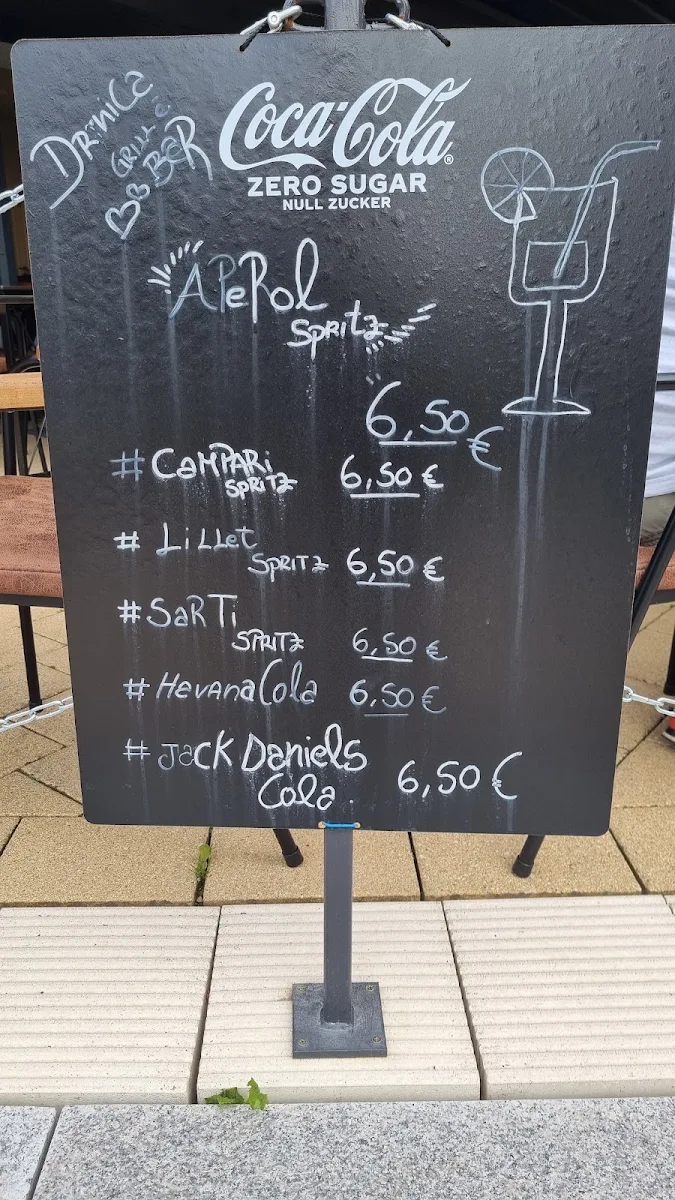 Drinica
Grill &
BaR
Coca-Cola®
ZERO SUGAR
NULL ZUCKER
APeRol
SPRitz
6,50 €
# CaMPARi
SPRITZ 6,50 €
# LiLLet
SPRITZ 6,50 €
# SaRTi
SPRITZ 6,50 €
# HevanaCola 6,50 €
# JaCK Daniels
Cola. 6,50 €